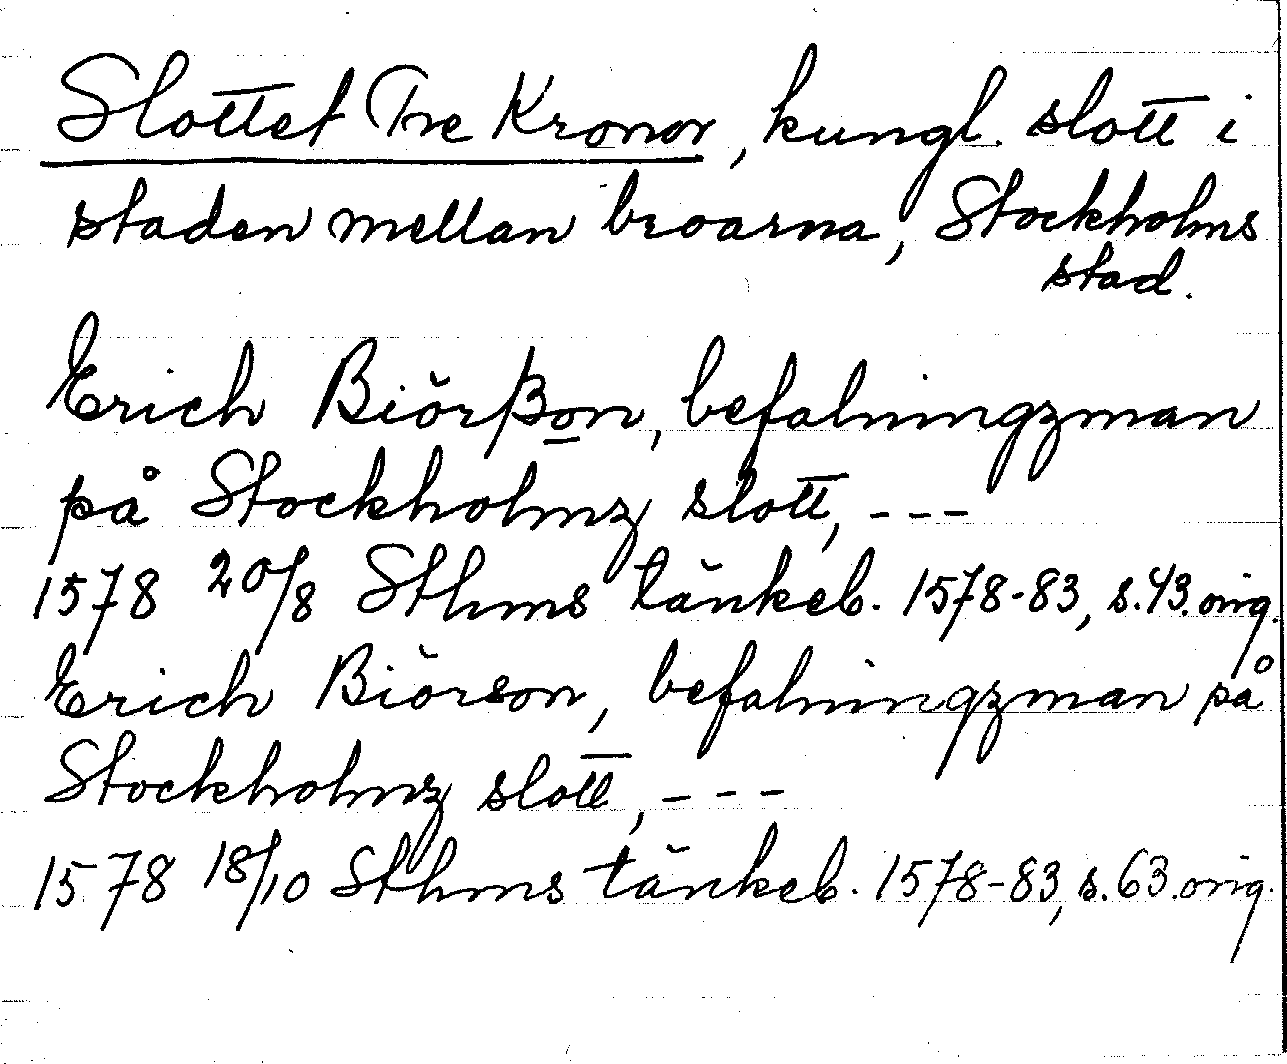 Slottet Tre Kronor, kungl. slott i
staden mellan broarna, Stockholms
stad.
Erich Biörßon, befalningzman
på Stockholmz slott, ---
1578 20/8 Sthms tänkeb. 1578-83, s.43.orig.
Erich Biörson, befalningzman på
Stockholmz slott, ---
1578 18/10 Sthms tänkeb. 1578-83, s.63.orig.